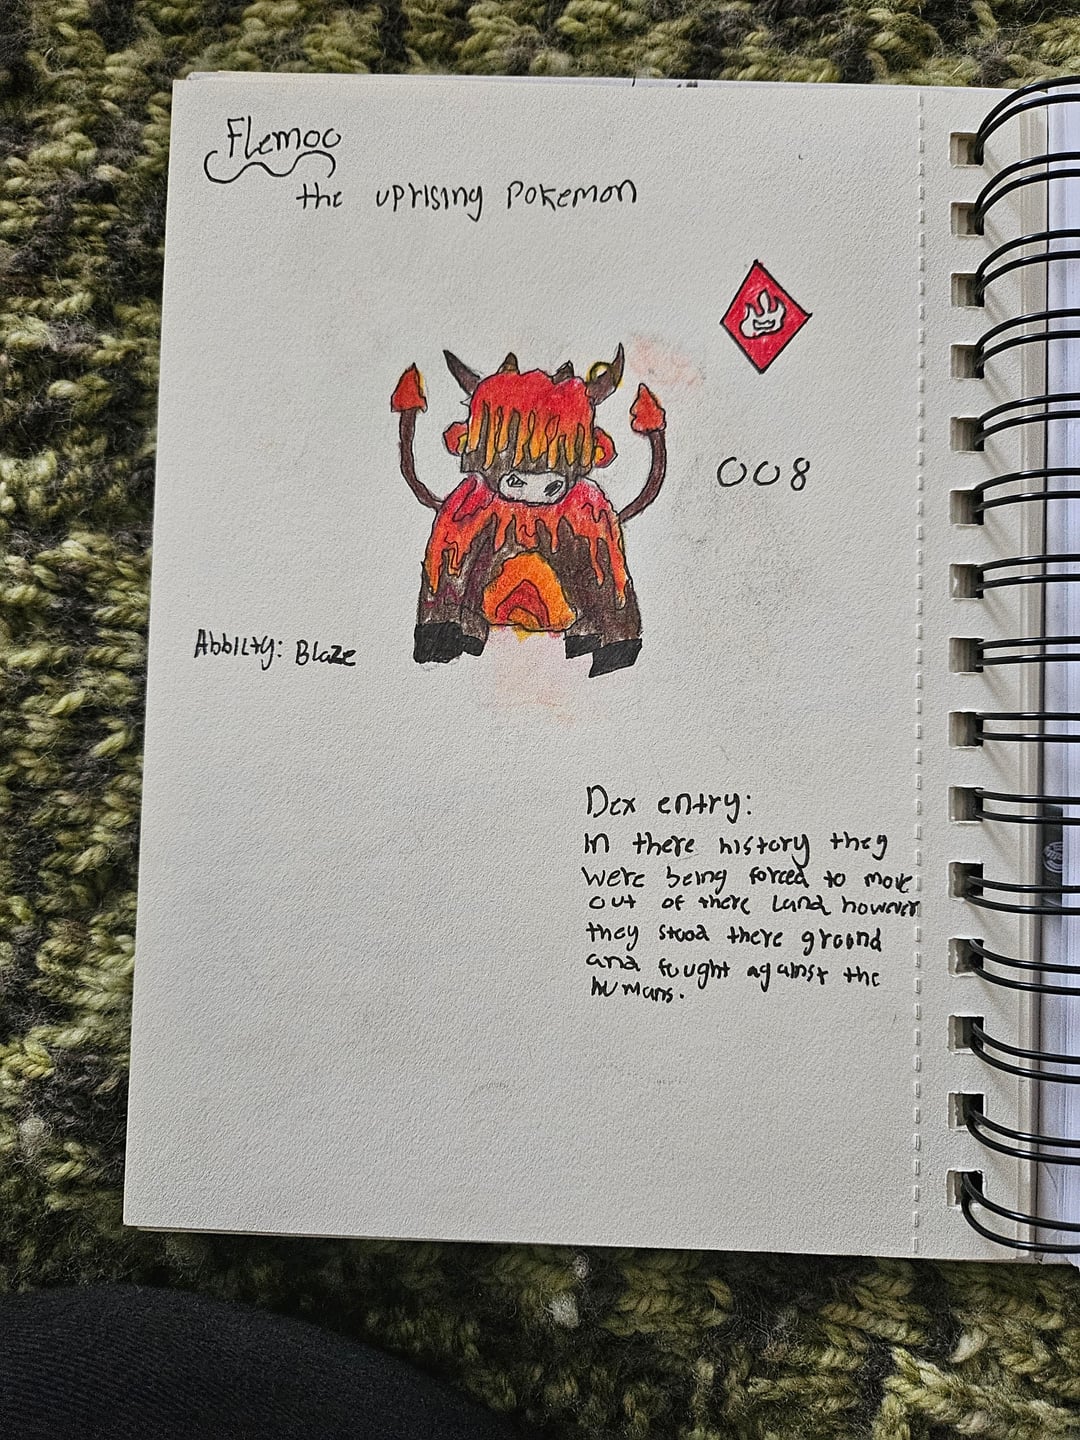 Flemoo
the uprising Pokemon
008
Abbilty: Blaze
Dex entry:
In there history they
were being forced to move
out of there land however
they stood there ground
and fought against the
humans.